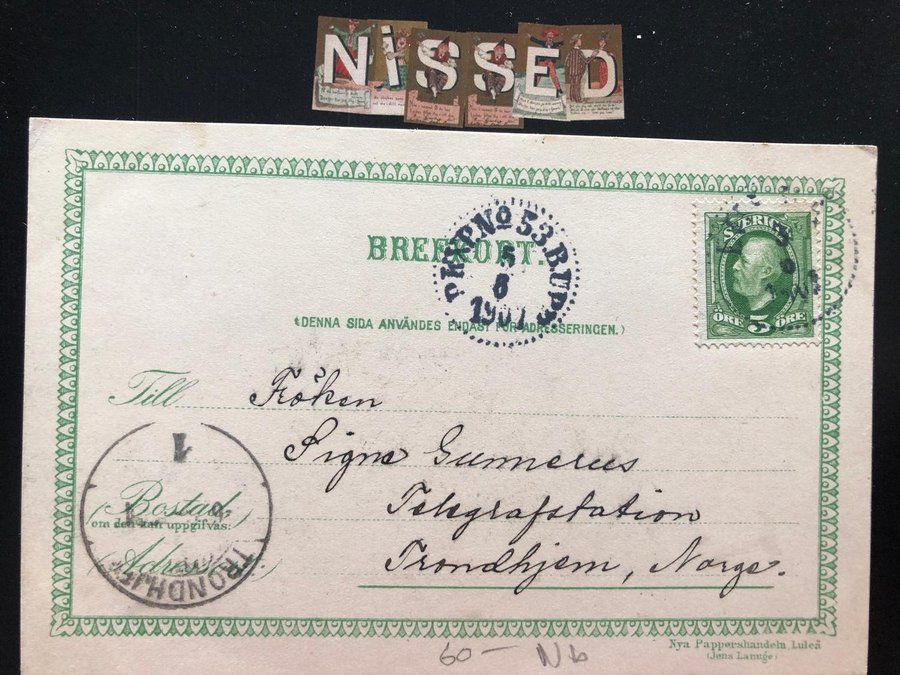 NiSSED
BREFKORT.
PKXP.No 53.B.UPP
5
8
1901
SVERIGE
ÖRE 5 ÖRE
(DENNA SIDA ANVÄNDES ENDAST FÖR ADRESSERINGEN.)
Till Fröken
Signe Gunnerus
Bostad, Telegrafstation
(om den kan uppgifvas:
Adress Trondhjem, Norge.
TRONDHJEM
1
Nya Pappershandeln Luleå
60- Nb